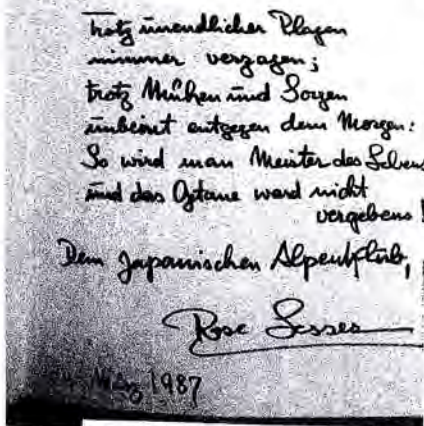 Trotz unendlicher Plagen
nimmer verzagen;
trotz Mühen und Sorgen
unbeirrt entgegen dem Morgen:
So wird man Meister des Lebens
und das Getane ward nicht
vergebens!
Dem Japanischen Alpenklub,
Rose
März 1987